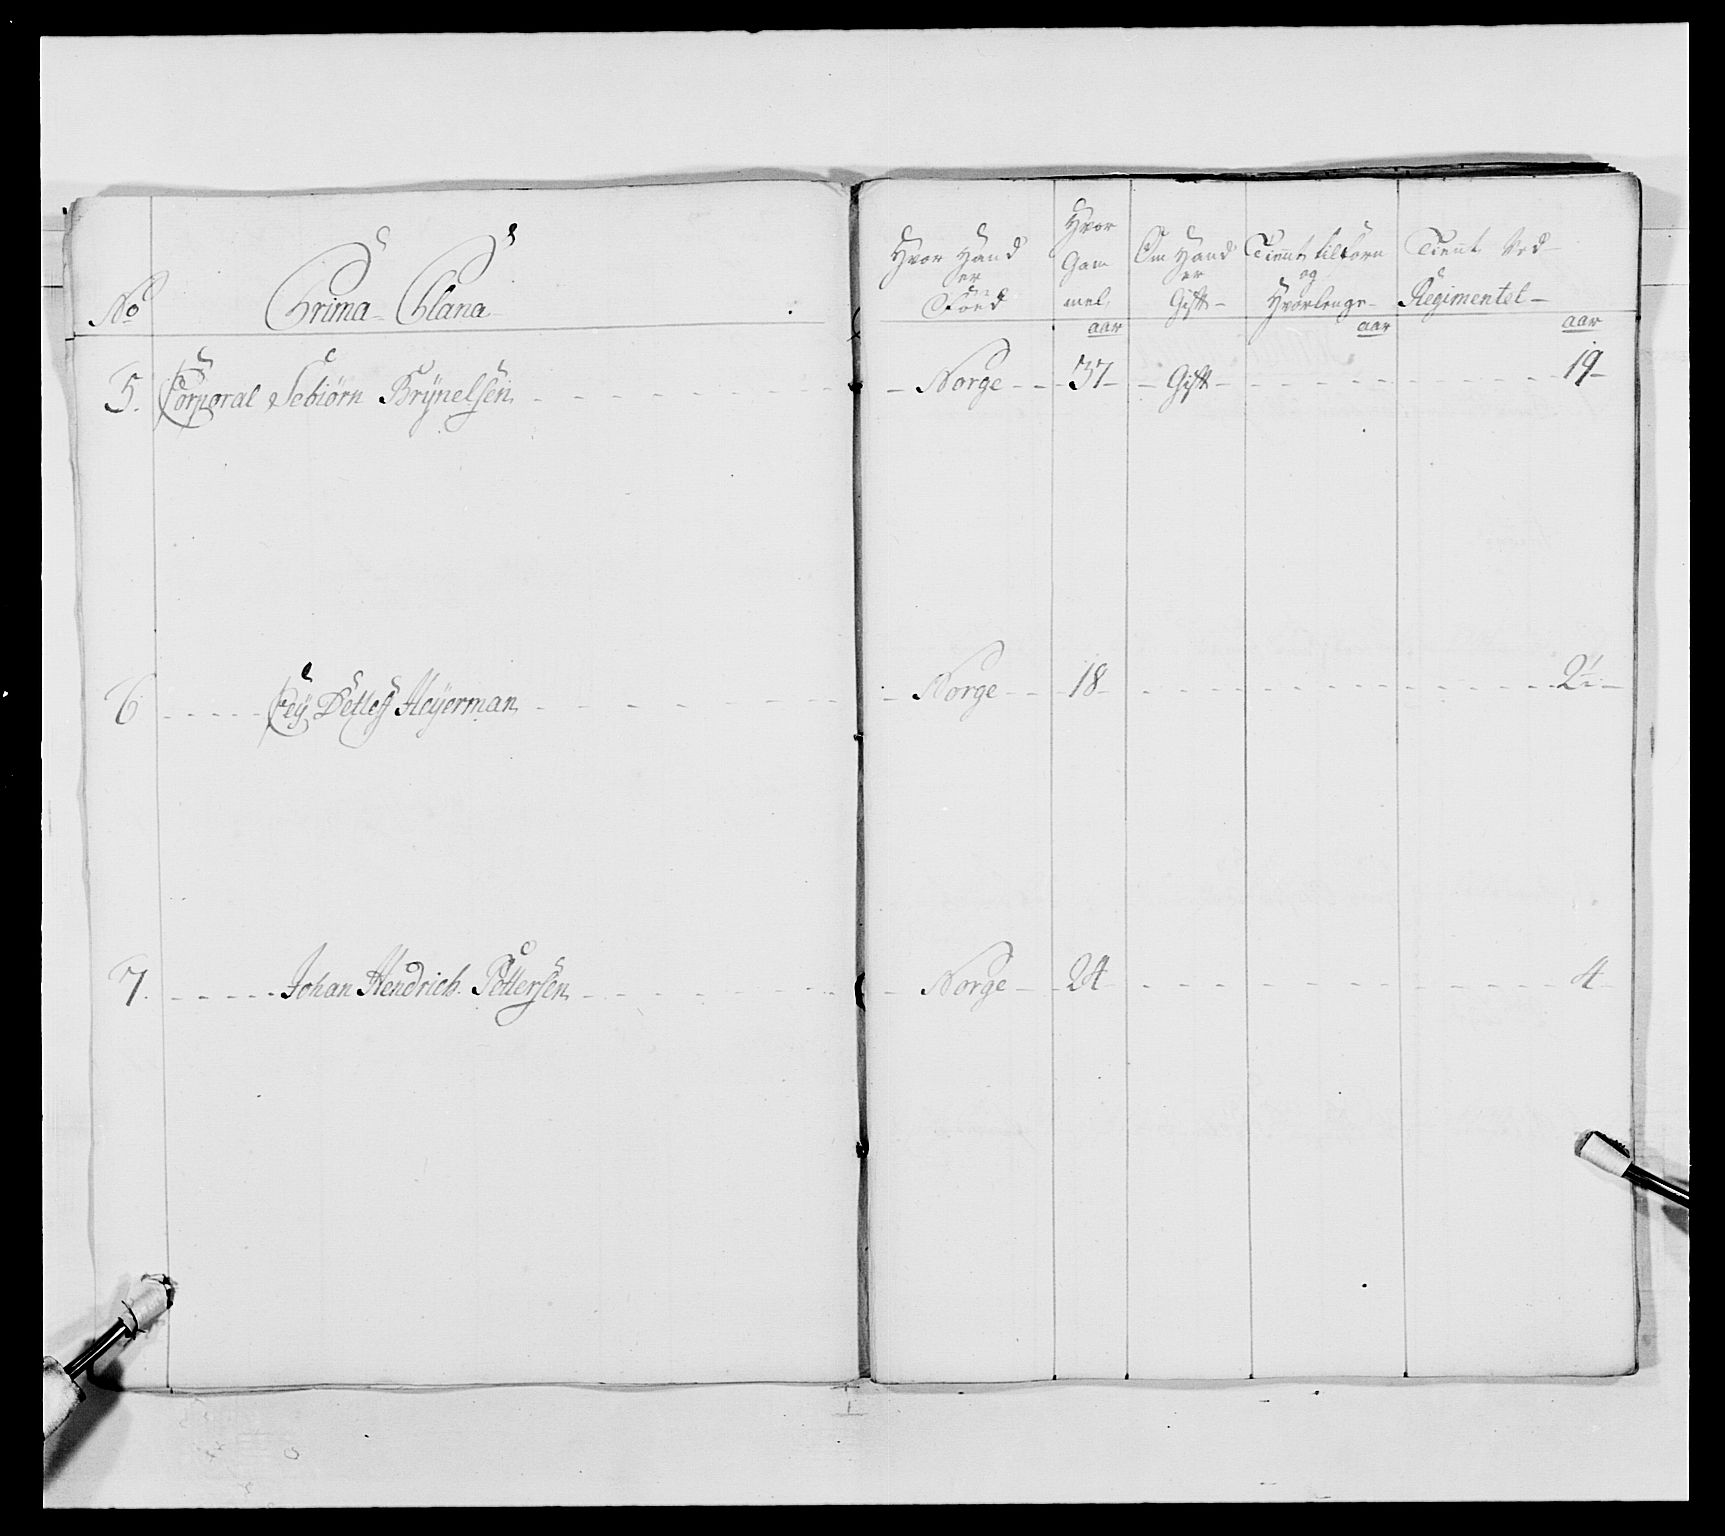 No Prima Plana
Hvor Hand er Föed
Hvor Gam mel, aar
Om Hand er Gift
Tient tilforn og Hvorlenge aar
Tient Ved Regimentet aar
5. Corporal Sebiörn Brÿnelsen Norge 37 Gift 19
6 Detlef Heÿerman Norge 18 2½
7. Johan Hendrich Pettersen Norge 24 4